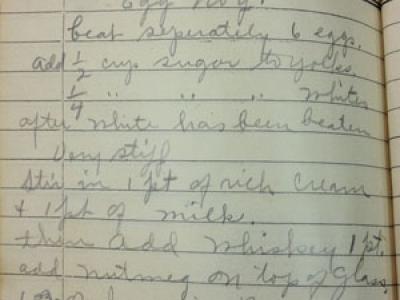 Egg Nog.
beat seperately 6 eggs.
add 1/2 cup sugar to yolks.
1/4 " " " whites
after white has been beaten
very stiff
stir in 1 pt of rich cream
+ 1 pt of milk.
then add whiskey 1 pt.
add nutmeg on top of glass.